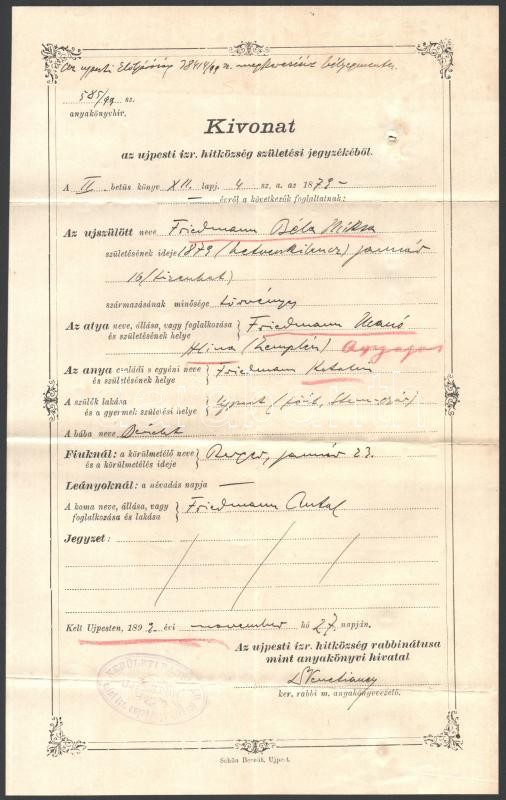 Az ujpesti Elöljáróság 28414/99 sz. megkeresésére bélyegmentes
585/99 sz.
anyakönyvhiv.
Kivonat
az ujpesti izr. hitközség születési jegyzékéből.
A II. betüs könyv XII. lapj. 4 sz. a. az 1879 –
— évről a következők foglaltatnak:
Az ujszülött neve Friedmann Béla Miksa
születésének ideje 1879 (hetvenkilencz) január
16/tizenhat)
származásának minősége törvényes
Az atya neve, állása, vagy foglalkozása és születésének helye Friedmann Manó
(Zemplén)
Az anya családi s egyéni neve és születésének helye Friedmann Katalin
A szülők lakása és a gyermek születési helye Ujpest
A bába neve
Fiuknál: a körülmetélő neve és a körülmetélés ideje Berger, január 23.
Leányoknál: a névadás napja —
A koma neve, állása, vagy foglalkozása és lakása Friedmann Antal
Jegyzet:
Kelt Ujpesten, 1899. évi november hó 27. napján.
Az ujpesti izr. hitközség rabbinátusa
mint anyakönyvi hivatal
Dr Venetianer
ker. rabbi m. anyakönyvvezető.
Schön Bernát, Ujpest.